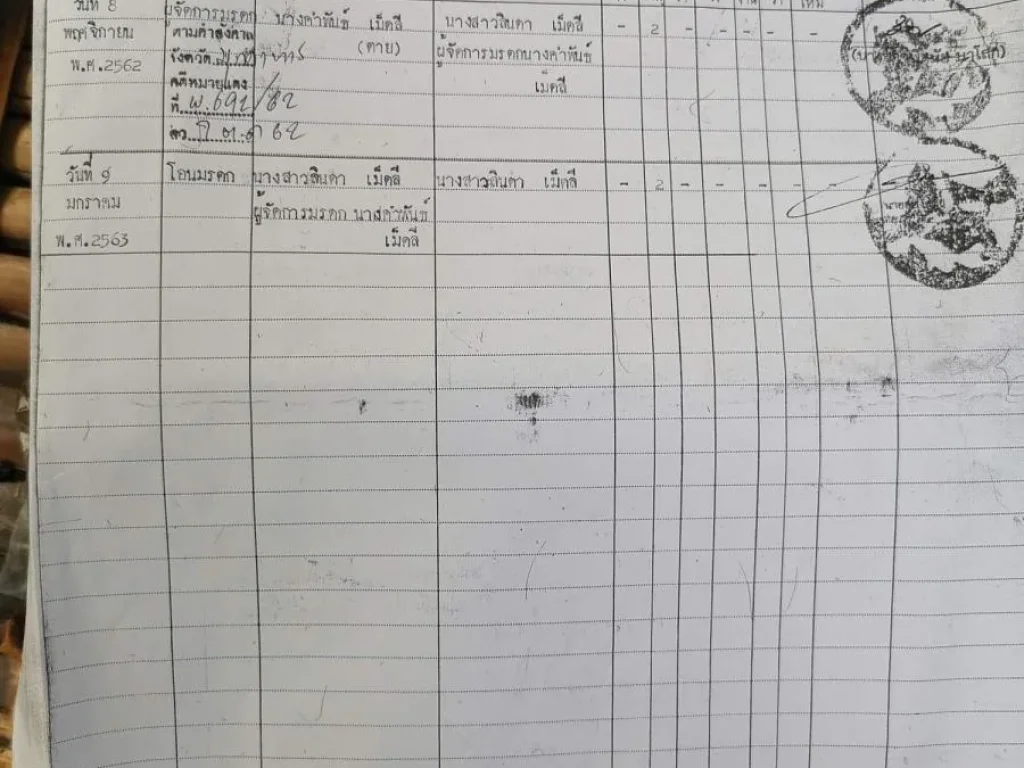 วันที่ 8 ผู้จัดการมรดก นางคำพันธ์ เม็ดลี นางสาวสินดา เม็ดลี - 2 - - - - -
พฤศจิกายน ตามคำสั่งศาล (ตาย) ผู้จัดการมรดกนางคำพันธ์
พ.ศ.2562 จังหวัด เม็ดลี
คดีหมายเลขแดง
ที่ พ.691/62
ลว. 62
วันที่ 9 โอนมรดก นางสาวสินดา เม็ดลี นางสาวสินดา เม็ดลี - 2 - - - - -
มกราคม ผู้จัดการมรดก นางคำพันธ์
พ.ศ.2563 เม็ดลี